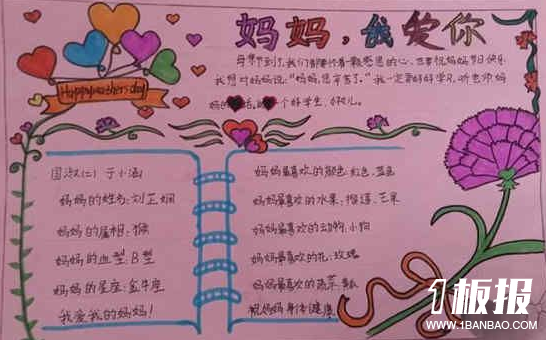 妈妈，我爱你
Happy mother's day!
母亲节到了，我们都怀着一颗感恩的心，
祝妈妈节日快乐
我想对妈妈说："妈妈，您辛苦了。"我一定要好好学习，听老师妈
妈的话，个好学生，好孩儿。
于小涵
妈妈的姓名：刘芷娴
妈妈的属相：猴
妈妈的血型：B型
妈妈的星座：金牛座
我爱我的妈妈！
妈妈最喜欢的颜色：红色、蓝色
妈妈最喜欢的水果：榴莲、芒果
妈妈最喜欢的动物：小狗
妈妈最喜欢的花：玫瑰
妈妈最喜欢的蔬菜：
祝妈妈身体健康
1板报
WWW.1BANBAO.COM